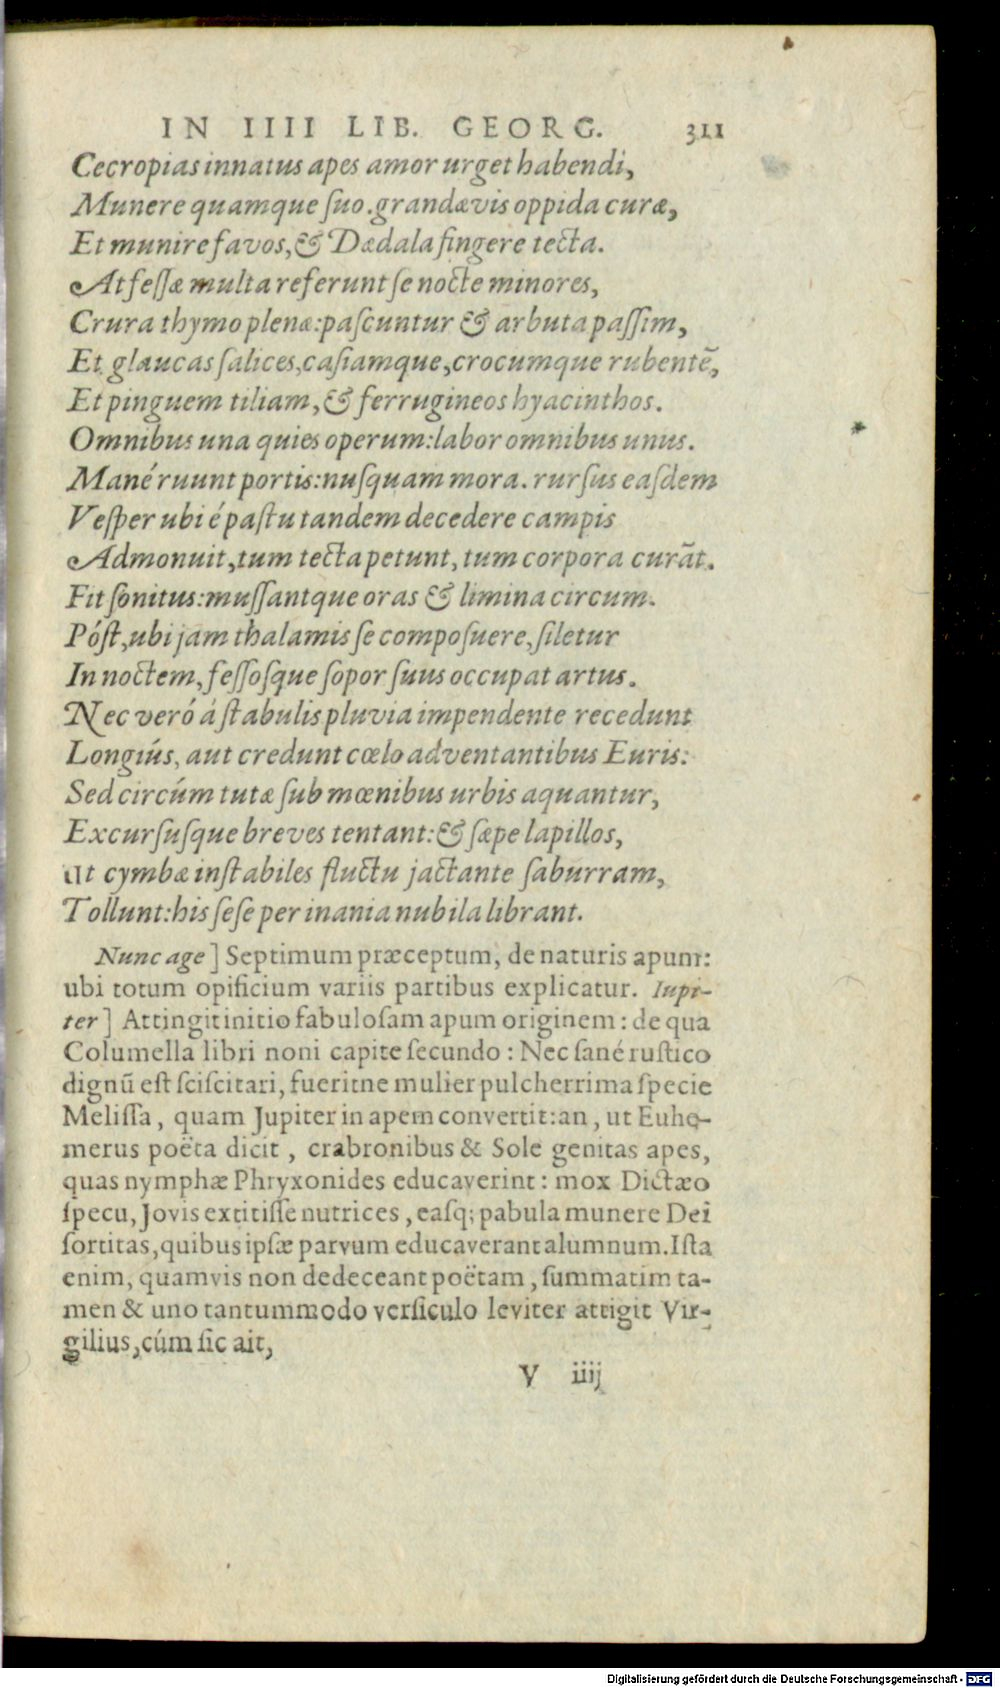 IN IIII LIB. GEORG. 311
Cecropias innatus apes amor urget habendi,
Munere quamque ſuo. grandævis oppida curæ,
Et munire favos, & Dædala fingere tecta.
At feſſæ multa referunt ſe nocte minores,
Crura thymo plenæ: paſcuntur & arbuta paſſim,
Et glaucas ſalices, caſiamque, crocumque rubentē,
Et pinguem tiliam, & ferrugineos hyacinthos.
Omnibus una quies operum: labor omnibus unus.
Mané ruunt portis: nuſquam mora. rurſus eaſdem
Veſper ubi é paſtu tandem decedere campis
Admonuit, tum tecta petunt, tum corpora curāt.
Fit ſonitus: muſſantque oras & limina circum.
Póſt, ubi jam thalamis ſe compoſuere, ſiletur
In noctem, feſſoſque ſopor ſuus occupat artus.
Nec veró á ſtabulis pluvia impendente recedunt
Longiús, aut credunt cœlo adventantibus Euris:
Sed circúm tutæ ſub mœnibus urbis aquantur,
Excurſuſque breves tentant: & ſæpe lapillos,
Ut cymbæ inſtabiles fluctu jactante ſaburram,
Tollunt: his ſeſe per inania nubila librant.
Nunc age ] Septimum præceptum, de naturis apum:
ubi totum opificium variis partibus explicatur. Iupi-
ter ] Attingit initio fabuloſam apum originem: de qua
Columella libri noni capite ſecundo: Nec ſané ruſtico
dignū eſt ſciſcitari, fueritne mulier pulcherrima ſpecie
Meliſſa, quam Jupiter in apem convertit: an, ut Euhe-
merus poëta dicit, crabronibus & Sole genitas apes,
quas nymphæ Phryxonides educaverint: mox Dictæo
ſpecu, Jovis extitiſſe nutrices, eaſq; pabula munere Dei
ſortitas, quibus ipſæ parvum educaverant alumnum. Iſta
enim, quamvis non dedeceant poëtam, ſummatim ta-
men & uno tantummodo verſiculo leviter attigit Vir-
gilius, cúm ſic ait,
V iiij
Digitalisierung gefördert durch die Deutsche Forschungsgemeinschaft - DFG